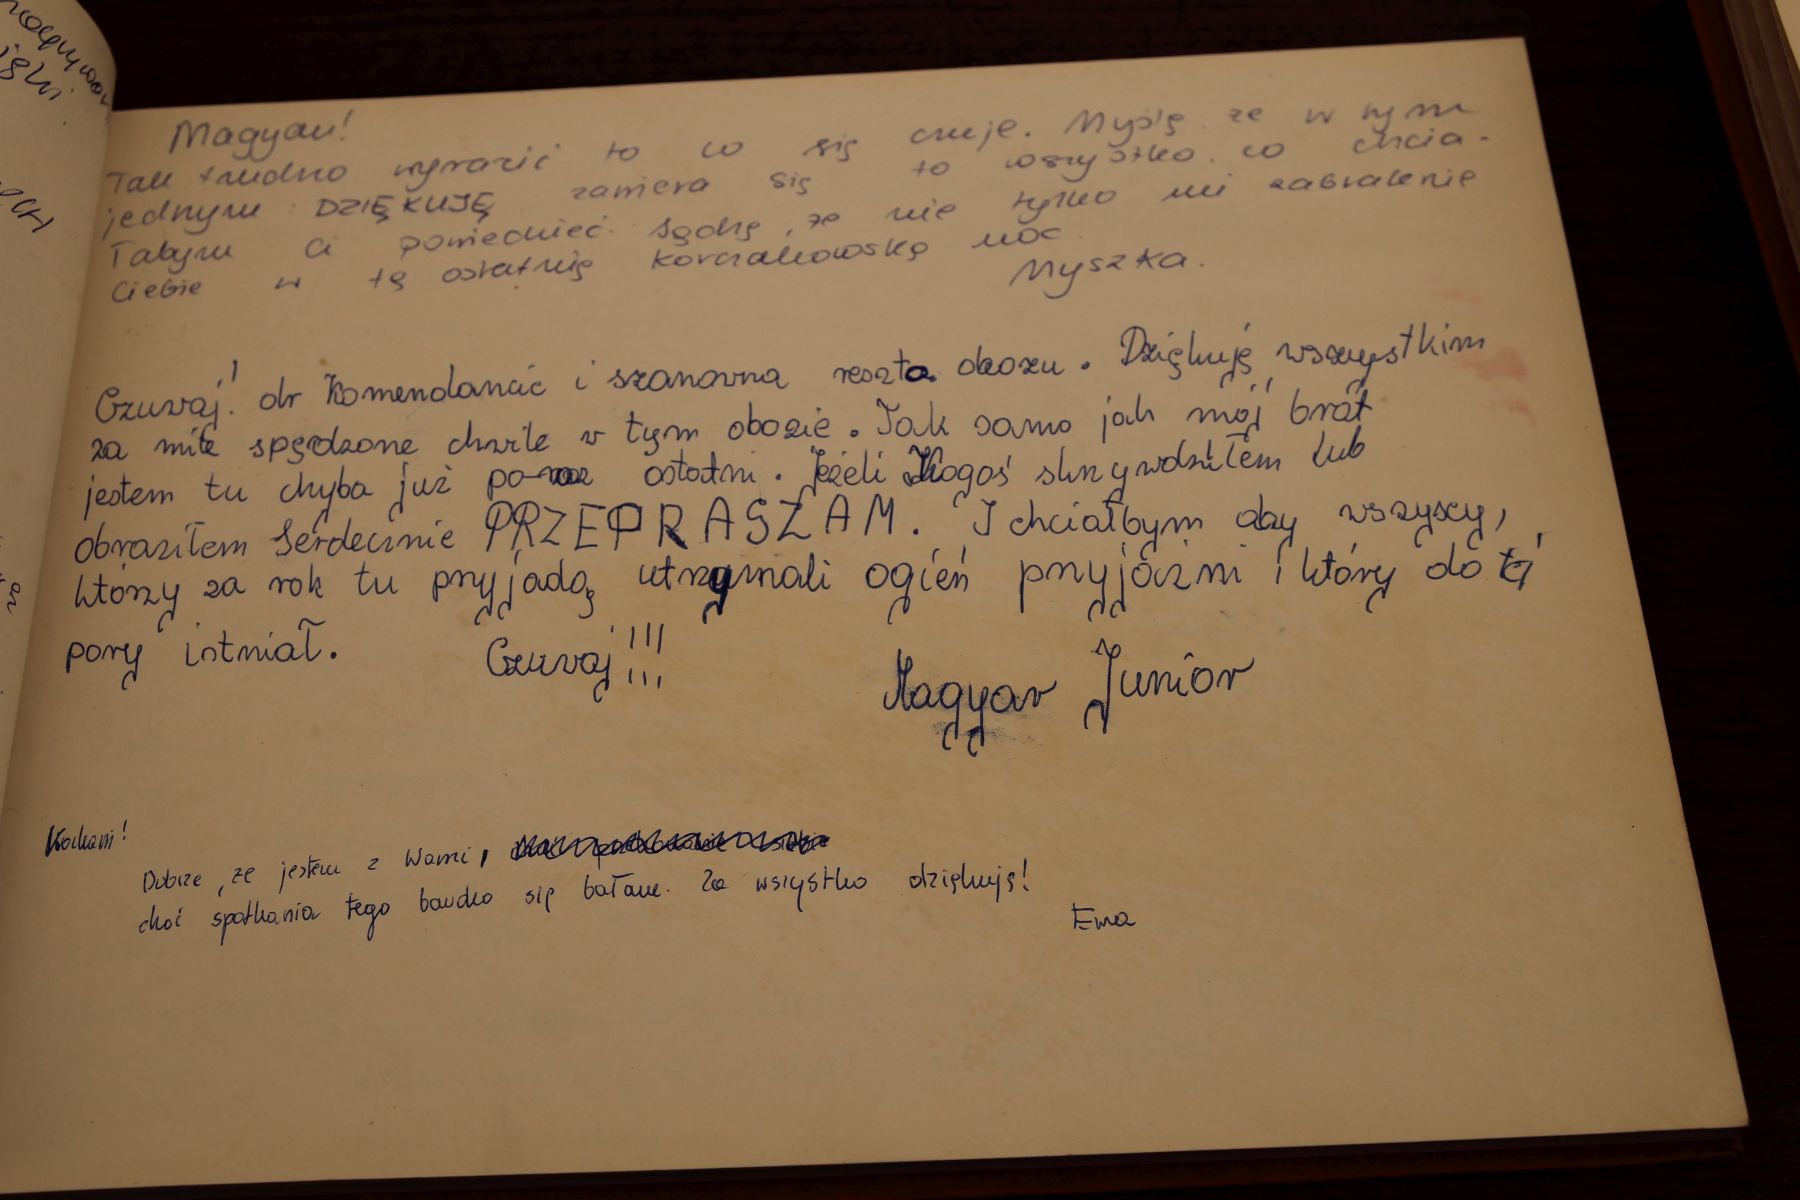 Magyar!
Tak trudno wyrazić to co się czuje. Myślę że w tym
jednym: DZIĘKUJĘ zawiera się to wszystko co chcia-
łabym Ci powiedzieć. Sądzę, że nie tylko mi zabraknie
Ciebie w tę ostatnią korczakowską noc.
Myszka.
Czuwaj! dr Komendancie i szanowna reszta obozu. Dziękuję wszystkim
za miłe spędzone chwile w tym obozie. Tak samo jak mój brat
jestem tu chyba już po raz ostatni. Jeżeli Kogoś skrzywdziłem lub
obraziłem Serdecznie PRZEPRASZAM. I chciałbym aby wszyscy,
którzy za rok tu przyjadą utrzymali ogień przyjaźni i który do tej
pory istniał. Czuwaj!!!
Magyar Junior
Kochani!
Dobrze, że jestem z Wami,
choć spotkania tego bardzo się bałam. Za wszystko dziękuję!
Ewa